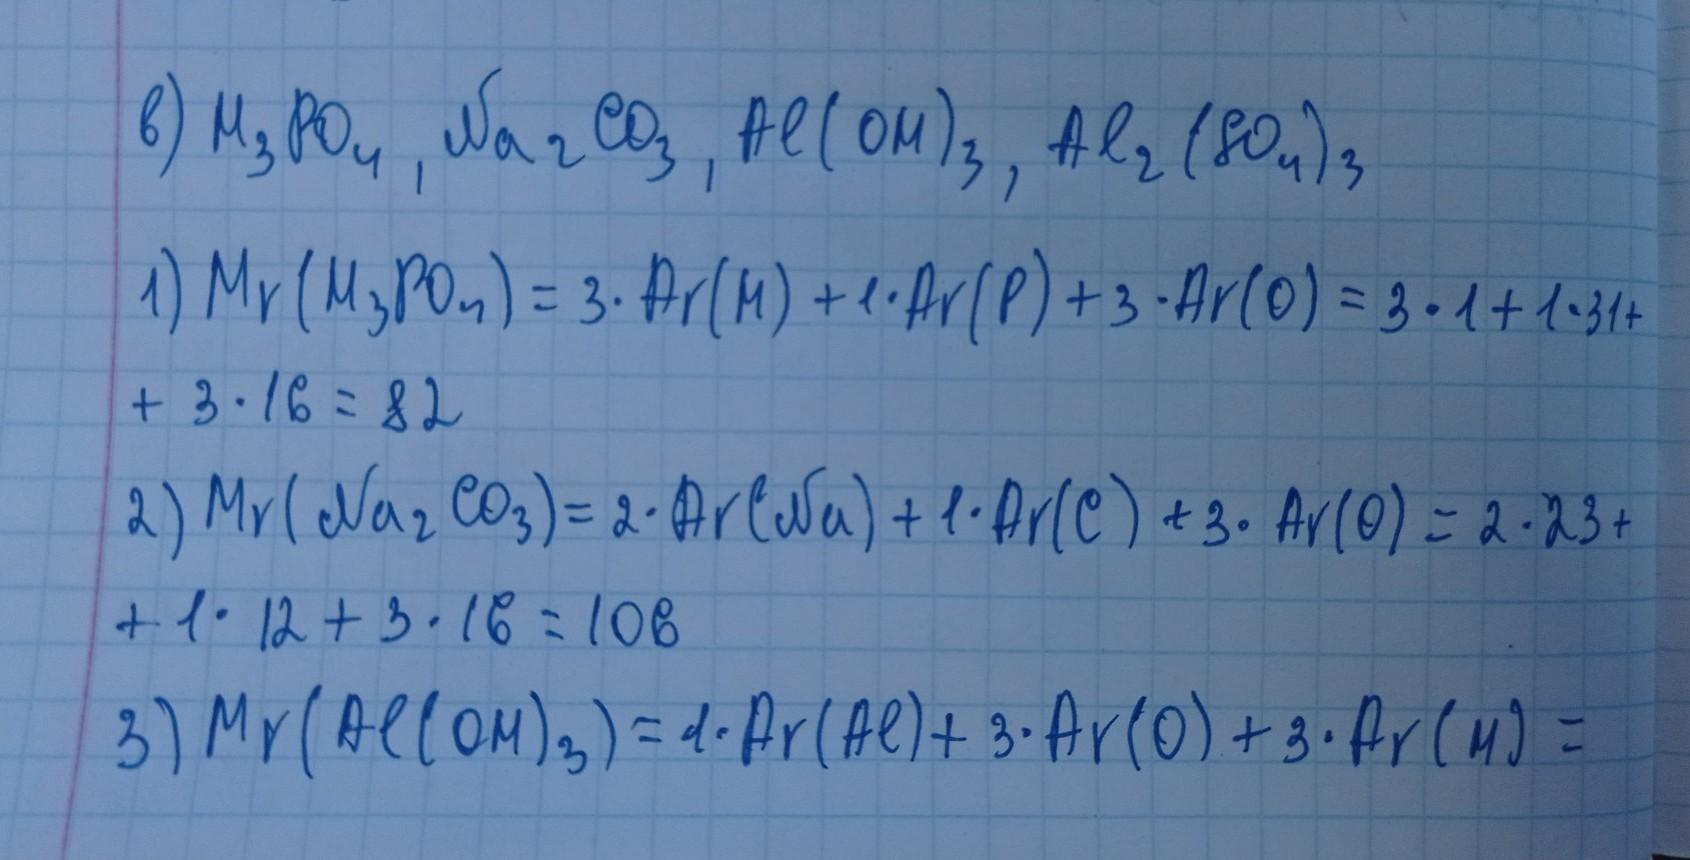 в) H₃PO₄, Na₂CO₃, Al(OH)₃, Al₂(SO₄)₃
1) Mr(H₃PO₄) = 3·Ar(H) + 1·Ar(P) + 3·Ar(O) = 3·1 + 1·31 +
+ 3·16 = 82
2) Mr(Na₂CO₃) = 2·Ar(Na) + 1·Ar(C) + 3·Ar(O) = 2·23 +
+ 1·12 + 3·16 = 106
3) Mr(Al(OH)₃) = 1·Ar(Al) + 3·Ar(O) + 3·Ar(H) =